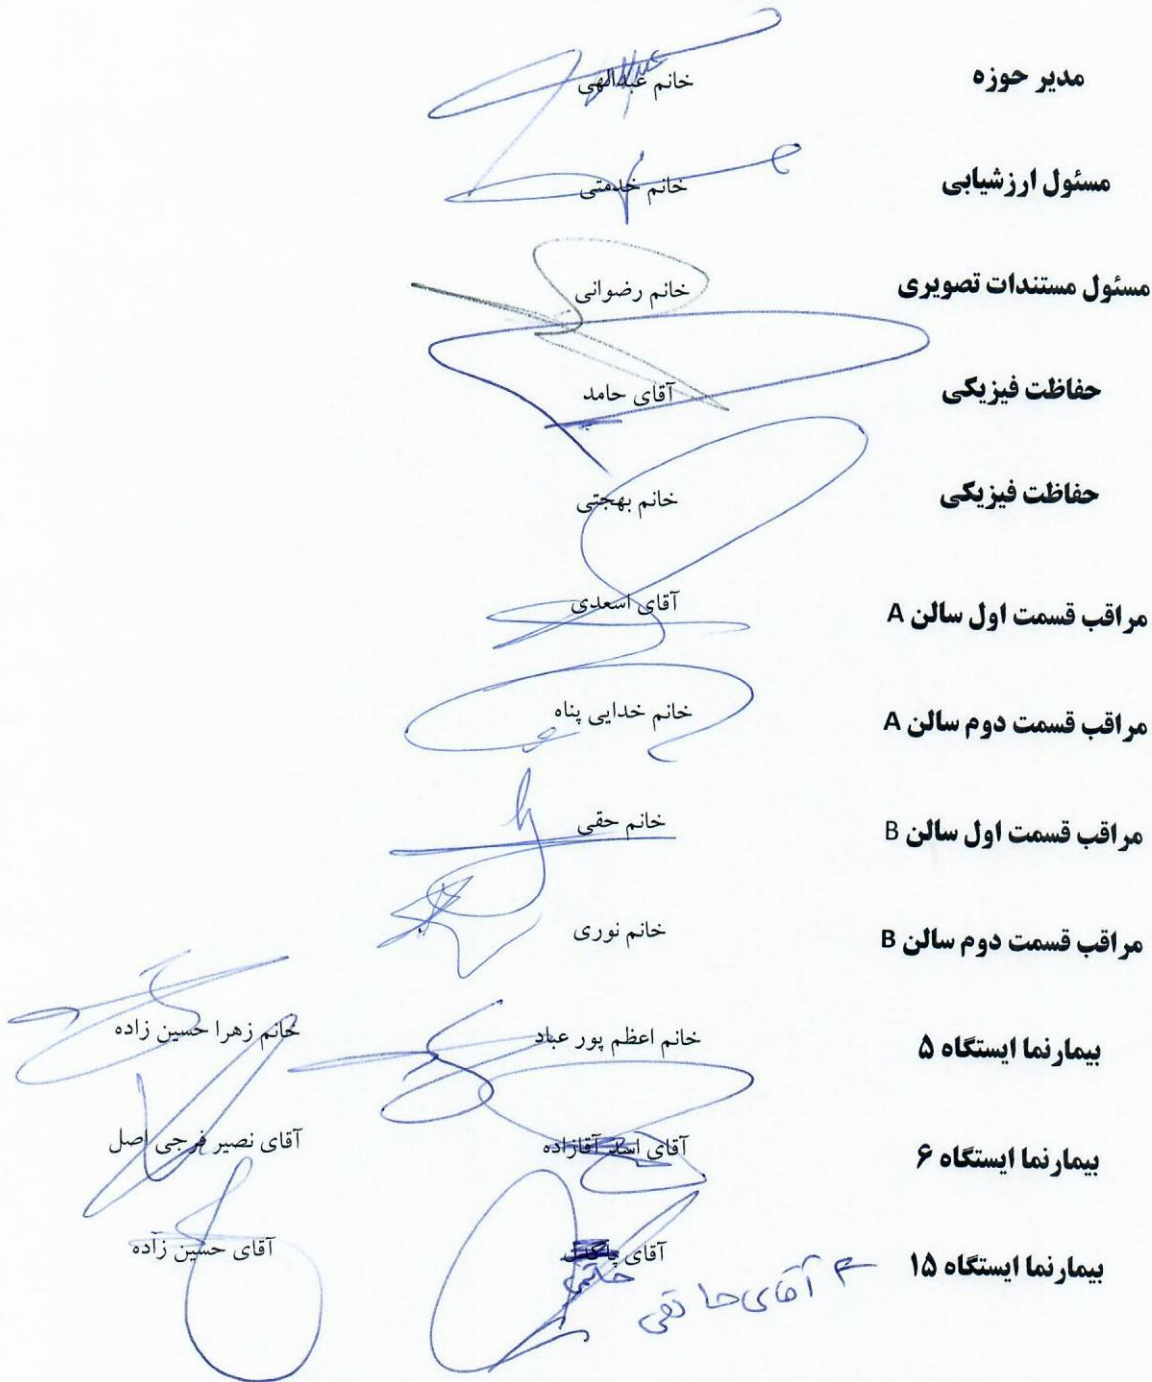 مدیر حوزه خانم عبدالهی
مسئول ارزشیابی خانم خدمتی
مسئول مستندات تصویری خانم رضوانی
حفاظت فیزیکی آقای حامد
حفاظت فیزیکی خانم بهجتی
مراقب قسمت اول سالن A آقای اسعدی
مراقب قسمت دوم سالن A خانم خدایی پناه
مراقب قسمت اول سالن B خانم حقی
مراقب قسمت دوم سالن B خانم نوری
بیمارنما ایستگاه ۵ خانم اعظم پور عباد خانم زهرا حسین زاده
بیمارنما ایستگاه ۶ آقای اسد آقازاده آقای نصیر فرجی اصل
بیمارنما ایستگاه ۱۵ آقای آقای حسین زاده
آقای